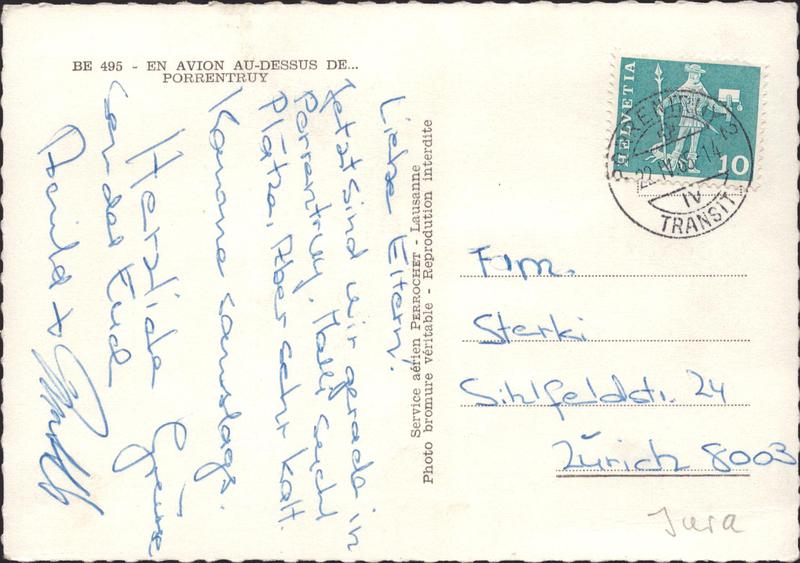 BE 495 - EN AVION AU-DESSUS DE...
PORRENTRUY
Liebe Eltern!
Jetzt sind wir gerade in
Porrentruy. Pauli sucht
Plätze. Aber sehr kalt.
Komme samstags.
Herzliche Grüsse
sendet Euch
Service aérien PERROCHET - Lausanne
Photo bromure véritable - Reprodution interdite
HELVETIA
10
PORRENTRUY 2
22.11.68-14
IV
TRANSIT
Fam.
Sterki
Sihlfeldstr. 24
Zürich 8003
Jura